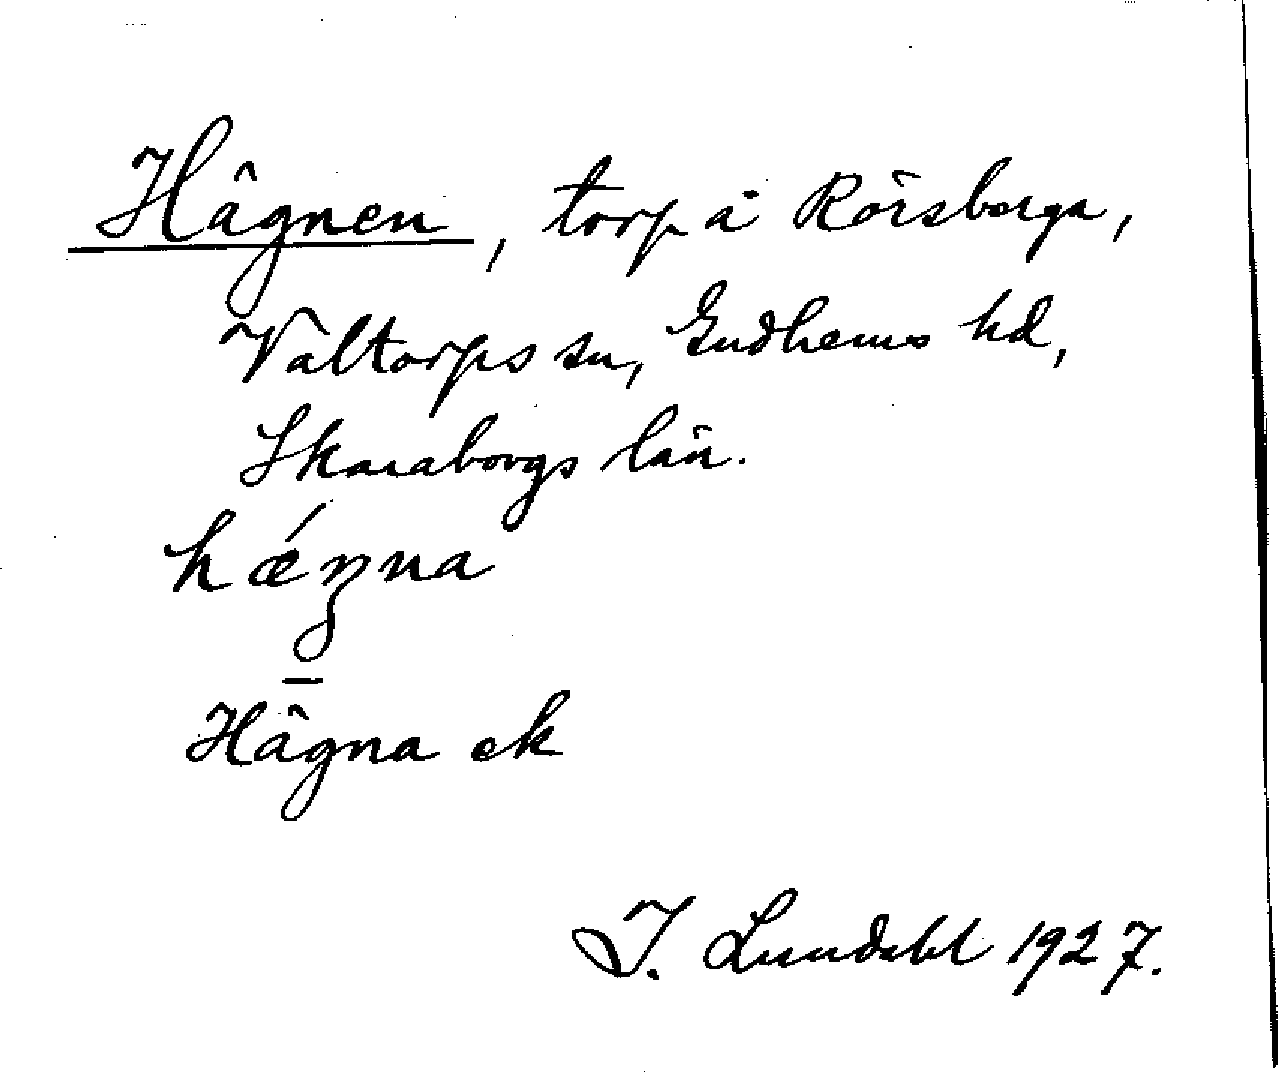 Hägnen, torp å Rörsberga,
Valtorps sn, Gudhems hd,
Skaraborgs län.
hǽŋna
Hägna ek
I. Lundahl 1927.